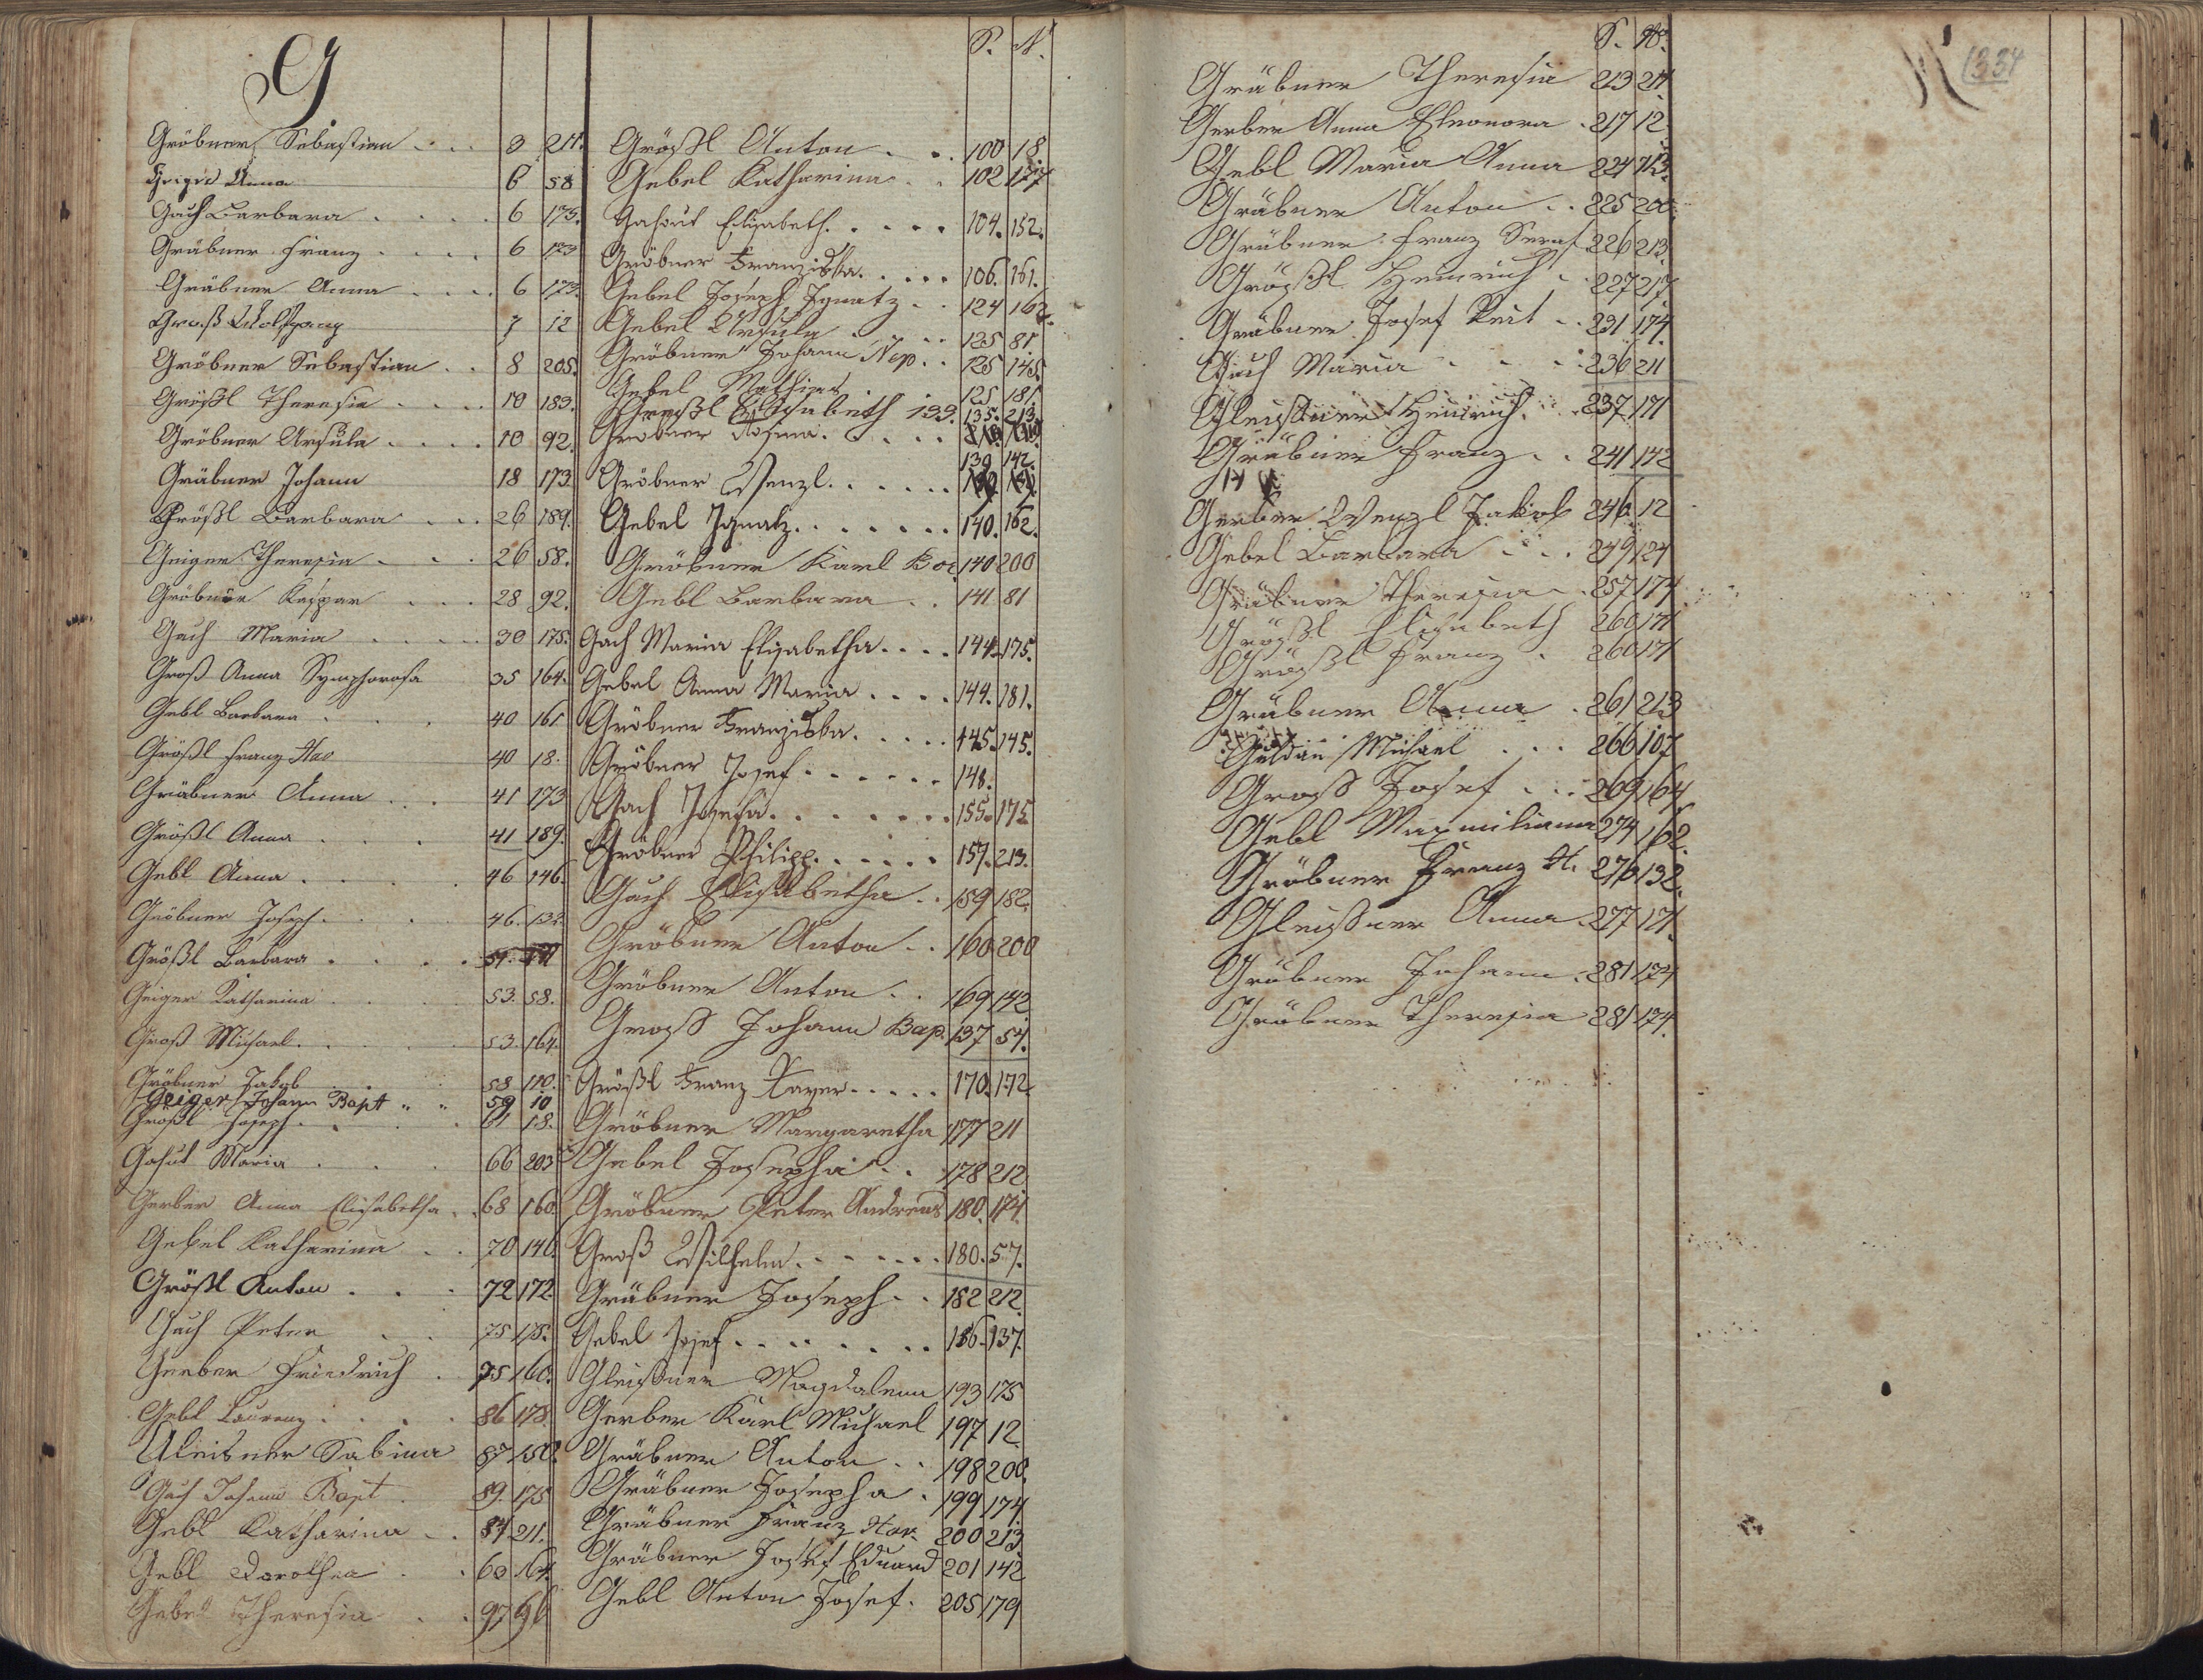 G
Gröbner Sebastian 3 211.
Geiger Anna 6 58
Gach Barbara 6 175.
Gräbner Franz 6 173
Gräbner Anna 6 173.
Groß Wolfgang 7 12
Gröbner Sebastian 8 205.
Größl Theresia 10 183.
Gröbner Ursula 10 92.
Gräbner Johann 18 173
Größl Barbara 26 189.
Geiger Theresia 26 58.
Gröbner Kaspar 28 92.
Gach Maria 30 175.
Groß Anna Symphorosa 35 164.
Gebl Barbara 40 161
Größl Franz Xav 40 18.
Gräbner Anna 41 173
Größl Anna 41 189.
Gebl Anna 46 146.
Gröbner Joseph 46. 132
Größl Barbara 51.
Geiger Katharina 53. 58.
Groß Michael 53. 164.
Gröbner Jakob 58 110.
Geiger Johann Bapt 59 10
Größl Joseph 61 18.
Gahut Maria 66 203
Gerber Anna Elisabetha 68 160.
Gebel Katharina 70 146.
Größl Anton 72 172.
Gach Peter 75 175.
Gerber Friedrich 75 160.
Gebl Laurenz 86 178.
Gleisner Sabina 87 150.
Gach Johann Bapt 89. 175
Gebl Katharina 84 211.
Gebl Dorothea 60 164.
Gebel Theresia 97 96
S. N.
Größl Anton 100 18.
Gebel Katharina 102 177
Gahut Elisabeth 104. 152.
Gröbner Franziska 106. 161.
Gebel Joseph Ignatz 124 162.
Gebel Ursula 125 81
Gröbner Johann Nep. 125 145.
Gebel Mathias 125 181.
Größl Elisabeth 133. 135. 213.
Gröbner Rosina 139 142.
Gröbner Wenzl
Gebel Ignatz 140. 162.
Gröbner Karl Bor. 140 200
Gebl Barbara 141 81
Gach Maria Elisabetha 144. 175.
Gebel Anna Maria 144. 181.
Gröbner Franziska 145. 145.
Gröbner Josef 148.
Gach Josefa 155. 175
Gröbner Philipp 157. 213.
Gach Elisabetha 159 182.
Gröbner Anton 160 200
Gröbner Anton 169 142
Groß Johann Bap. 137 54.
Größl Franz Xaver 170. 172.
Gröbner Margaretha 177 211
Gebel Josepha 178 212
Gröbner Peter Andreas 180. 174.
Groß Wilhelm 180. 57.
Gräbner Joseph 182 212.
Gebel Josef 186. 137.
Gleißner Magdalena 193 175
Gerber Karl Michael 197 12
Gräbner Anton 198 200.
Gräbner Josepha 199 174.
Gräbner Franz Xav. 200 213
Gräbner Josef Eduard 201 142
Gebl Anton Josef. 205 179
S. N.
Gräbner Theresia 213 211
Gerber Anna Eleonora 217 12
Gebl Maria Anna 224 113.
Gräbner Anton 225 200.
Gräbner Franz Seraf 226 213
Größl Heinrich 227 217
Gräbner Josef Veit 231 174.
Gach Maria 236 211
Gleißner Heinrich 237 171
Gräbner Franz 241 142
Gerber Wenzl Jakob 246 12
Gebel Barbara 249 124
Gräbner Theresia 257 174
Größl Elisabeth 260 171
Größl Franz 260 171
Gräbner Anna 261 213
Guldan Michael 266 107
Groß Josef 269 164
Gebl Maxmiliana 274 162.
Gröbner Franz X. 276 132.
Gleißner Anna 277 171.
Gräbner Johann 281 174
Gröbner Theresia 281 174.
1334